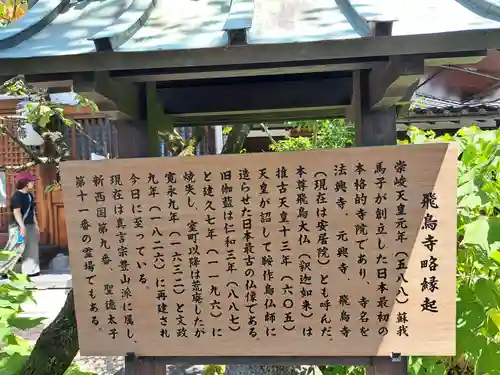 飛鳥寺略縁起
崇峻天皇元年(五八八)蘇我
馬子が創立した日本最初の
本格的寺院であり、寺名を
法興寺、元興寺、飛鳥寺
(現在は安居院)とも呼んだ。
本尊飛鳥大仏(釈迦如来)は
推古天皇十三年(六〇五)
天皇が詔して鞍作鳥仏師に
造らせた日本最古の仏像である。
旧伽藍は仁和三年(八八七)
と建久七年(一一九六)に
焼失し、室町以降は荒廃したが
寛永九年(一六三二)と文政
九年(一八二六)に再建され
今日に至っている。
現在は真言宗豊山派に属し、
新西国第九番、聖徳太子
第十一番の霊場でもある。